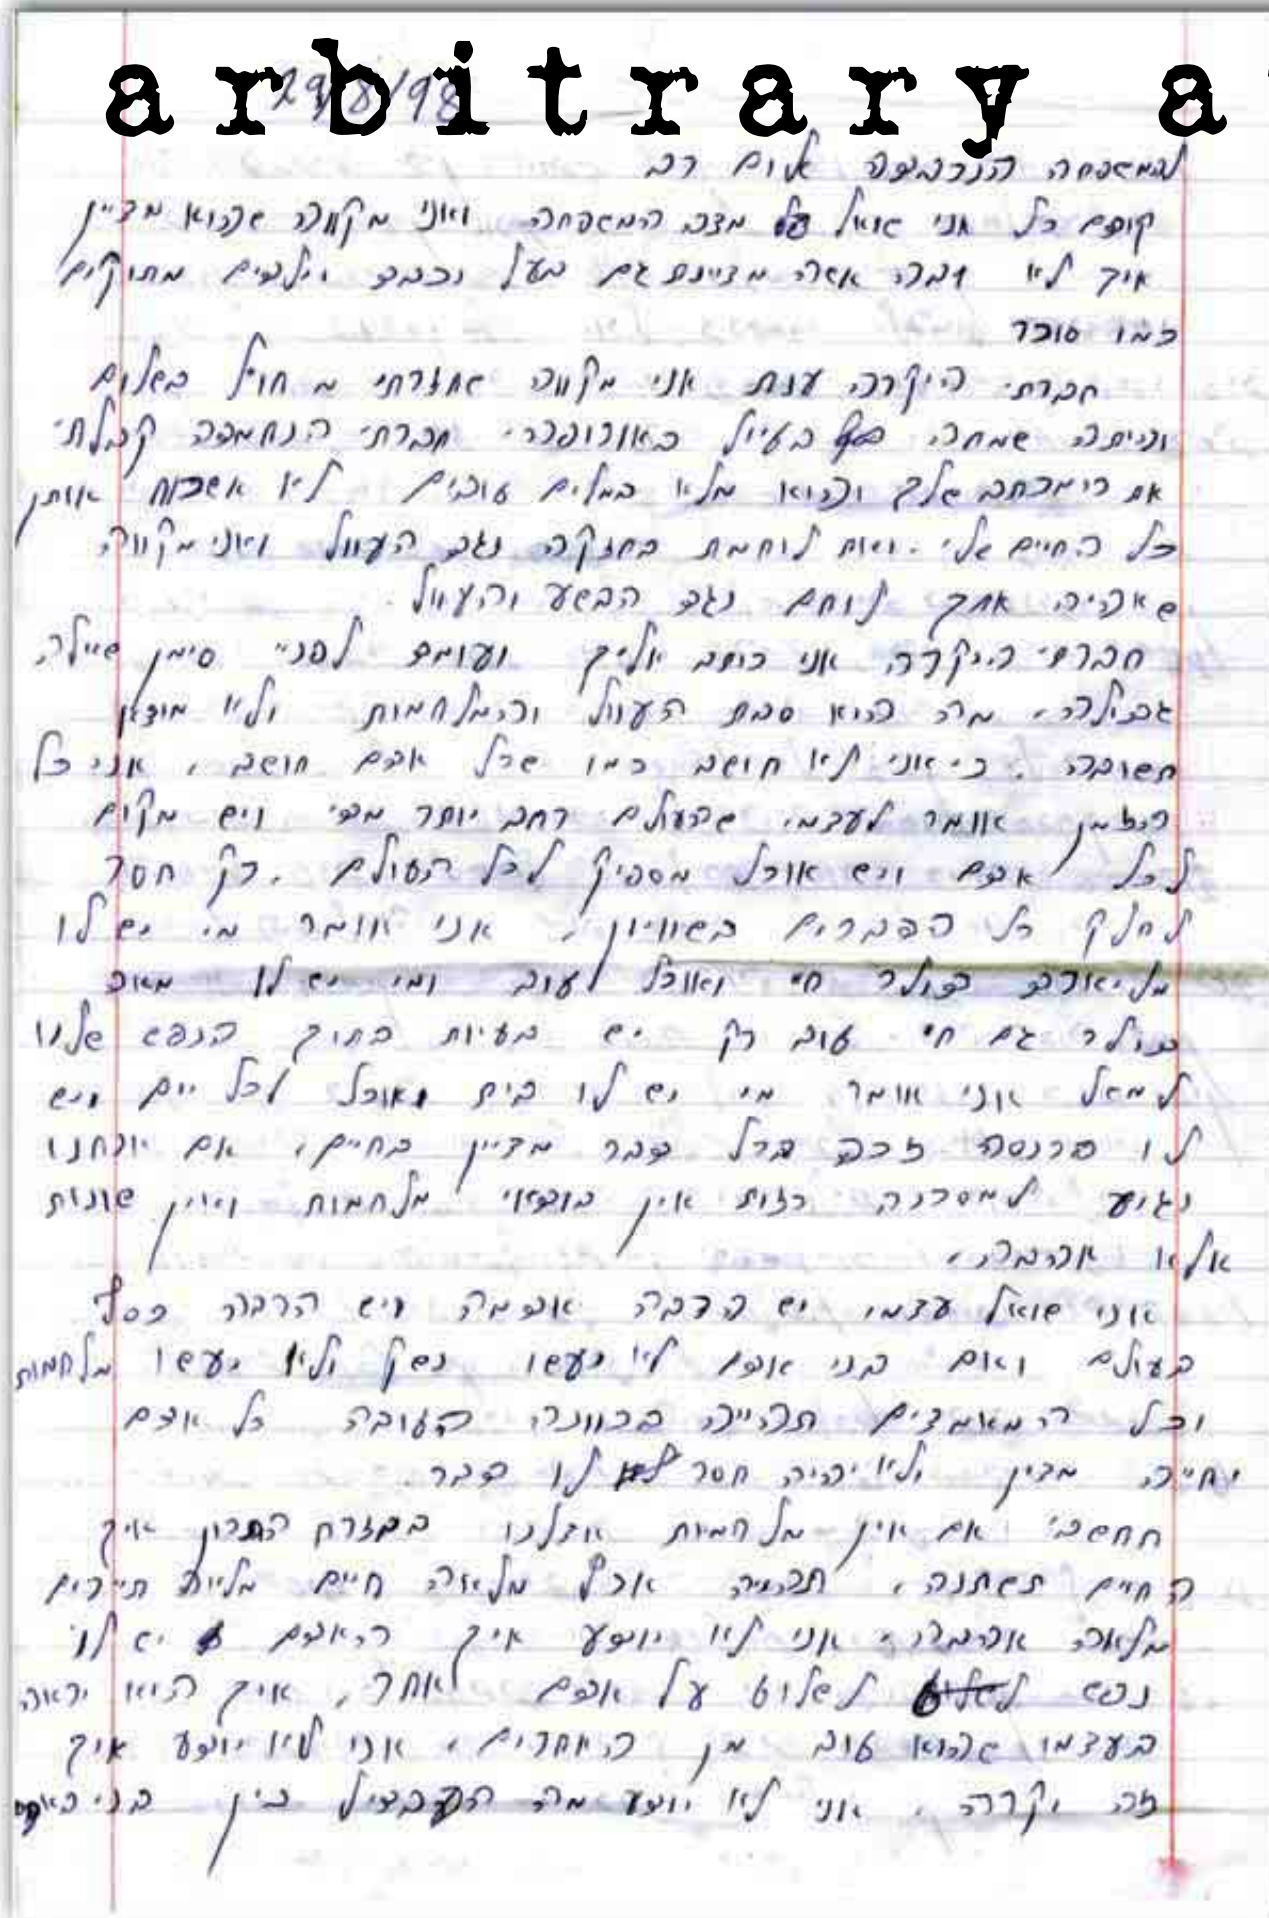 arbitrary a
29/8/98
למשפחה הנכבדה שלום רב
קודם כל אני שואל על מצב המשפחה ואני מקווה שהוא מציין
איך לא אשה מציינת גם בעל נכבד וילדים מתוקים
כמו סוכר
חברתי היקרה ענת אני מקווה שחזרתי מחו"ל בשלום
והיתה שמחה בטיול באורופה. חברתי הנחמדה קבלתי
את המכתב שלך והוא מלא במלים טובים לא אשכח אותן
כל החיים שלי. ואת לוחמת בחזקה נגד העוול ואני מקווה
שאהיה אתך לוחם נגד הפשע והעוול.
חברתי היקרה אני כותב אליך ועומד לפניי סימן שיילה
גבולה, מה הוא סבת העוול והמלחמות ולא מוצאן
תשובה. כי אני לא חושב כמו שכל אדם חושב, אני כל
הזמן אומר לעצמי שהעולם רחב יותר מדי ויש מקום
לכל אדם ויש אוכל מספיק לכל העולם. רק חסר
לחלק כל הדברים בשוויון, אני אומר מי יש לו
מליארד דולר חי ואוכל טוב ומי יש לו מאה
דולר גם חי טוב רק יש בעיות בתוך הנפש שלנו
למשל אני אומר מי יש לו בית ואוכל לכל יום ויש
לו פרנסה זכה בכל דבר מציין בחיים, אם אנחנו
נגיע למסקנה כזות אין בוודאי מלחמות ואין שונות
אלא אהבה.
אני שואל עצמי יש הרבה אדמה ויש הרבה כסף
בעולם ואם בני אדם לא יעשו נשק ולא יעשו מלחמות
וכל המאמצים תהייה בכוונה הטובה כל אדם
יחייה מציין ולא יהיה חסר לו דבר.
תחשבי אם אין מלחמות אצלנו במזרח התכון איך
החיים תשתנה, תהיה ארץ מלאה חיים מליאת תיירים
מלאה אהבה, אני לא יודע איך האדם יש לו
נפש לשלוט על אדם לאחר, איך הוא יראה
בעצמו שהוא טוב מן האחרים, אני לא יודע איך
זה יקרה, אני לא יודע מה ההבדיל בין בני האדם